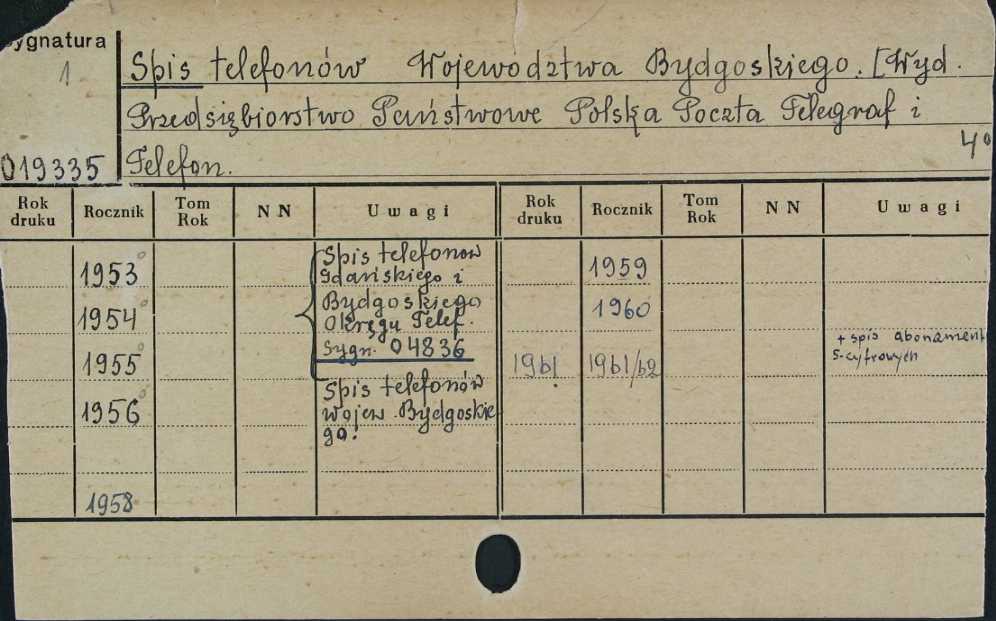 Sygnatura
1
Spis telefonów Województwa Bydgoskiego. [Wyd.
Przedsiębiorstwo Państwowe Polska Poczta Telegraf i
Telefon.
4°
019335
Rok druku Rocznik Tom Rok NN Uwagi Rok druku Rocznik Tom Rok NN Uwagi
1953
1954
1955
1956
1958
Spis telefonów
Gdańskiego i
Bydgoskiego
Okręgu Telef.
Sygn. 04836
Spis telefonów
wojew. Bydgoskie
go.
1959
1960
1961 1961/62
+ spis abonament
5-cyfrowych